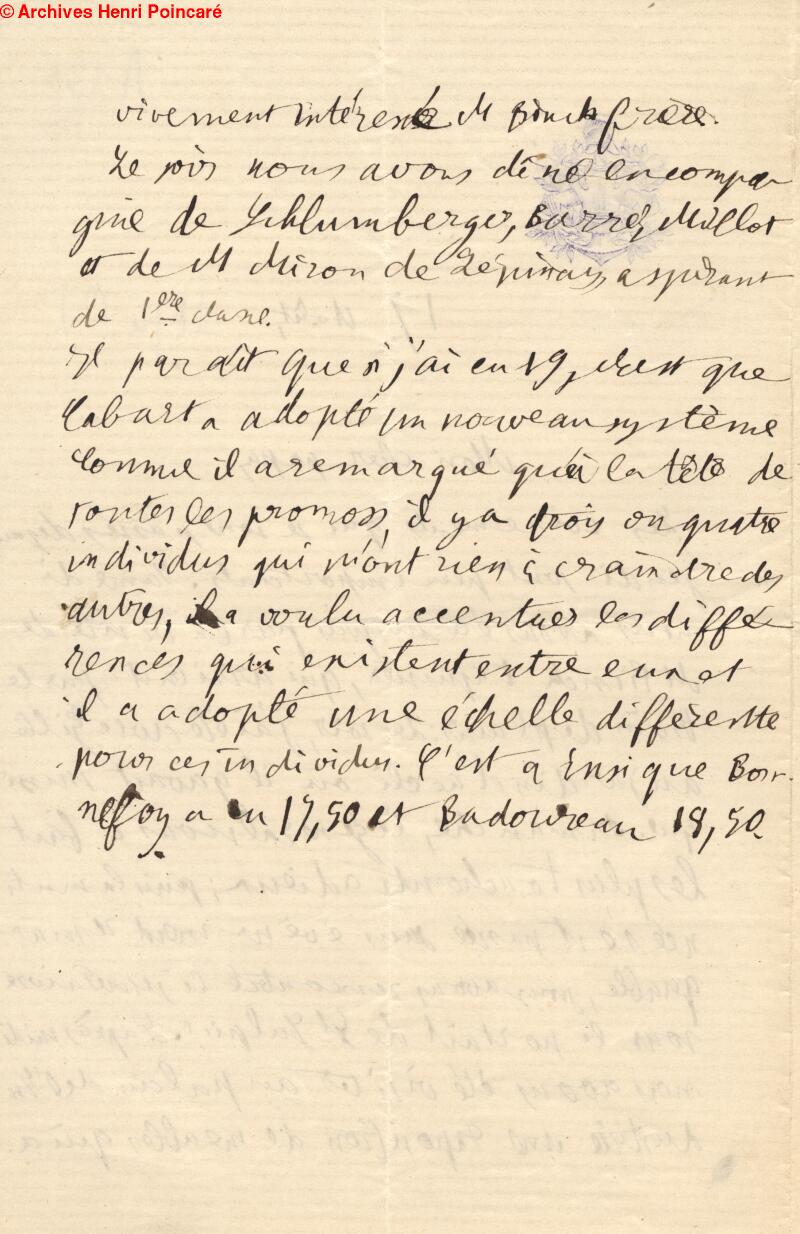 © Archives Henri Poincaré
vivement intéressé M frère.
Le soir nous avons dîné en compa
gnie de Schlumberger, Barré, Millot
et de M Miron de Lépinay, aspirant
de 1ère classe.
Il paraît que si j'ai eu 19, c'est que
Cabart a adopté un nouveau système
Comme il a remarqué qu'à la tête de
toutes les promoss, il y a trois ou quatre
individus qui n'ont rien à craindre des
autres, il a voulu accentuer les diffé
rences qui existent entre eux et
il a adopté une échelle différente
pour ces individus. C'est ainsi que Bon-
nefoy a eu 17,50 et Badoureau 18,50.